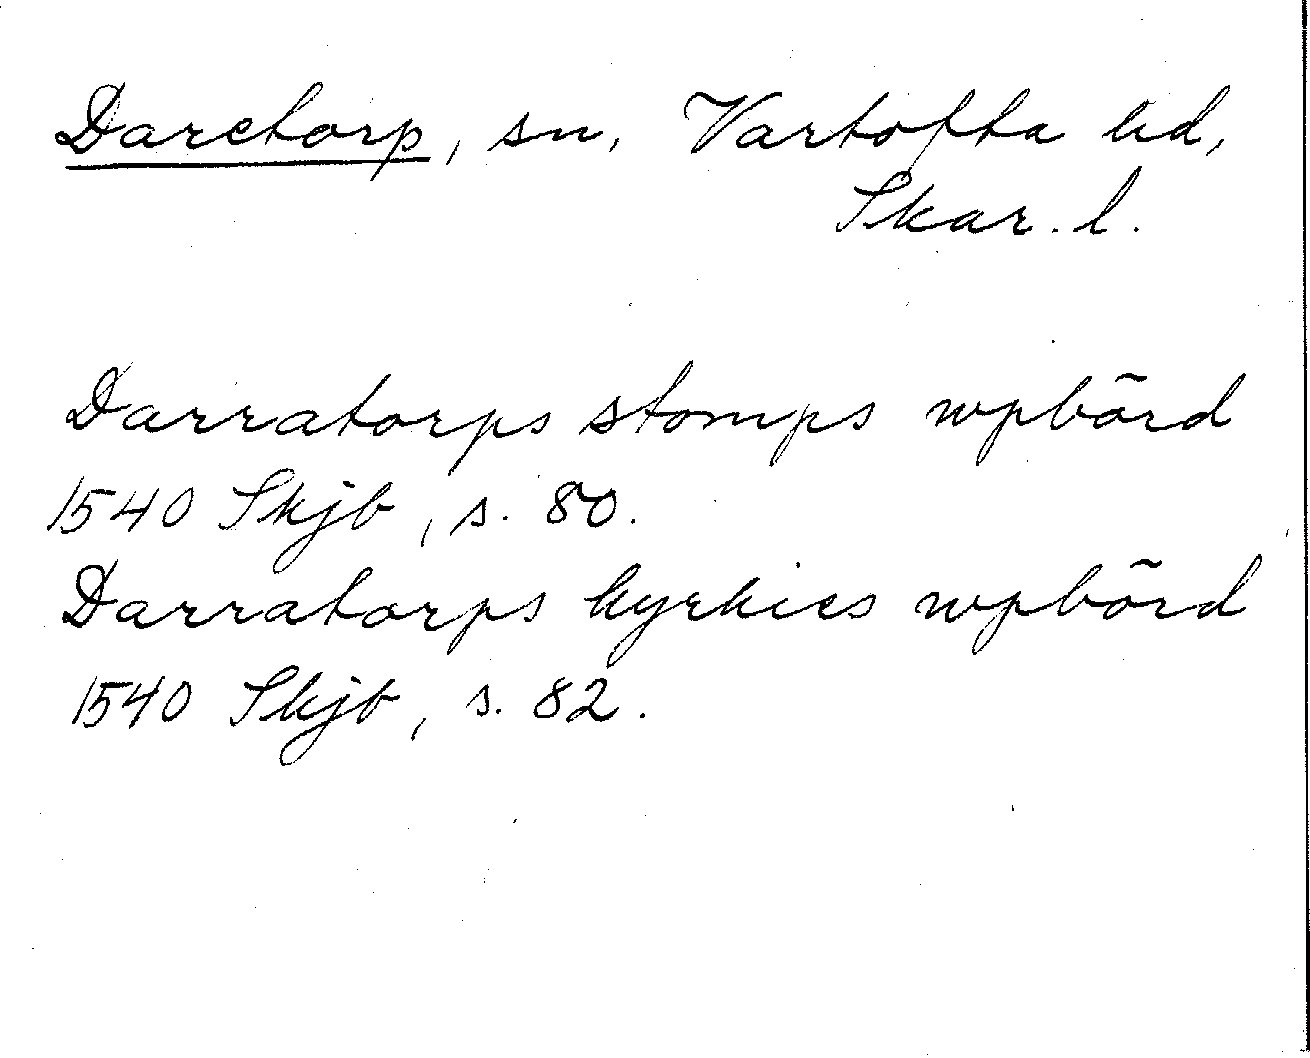 Daretorp, sn, Vartofta hd,
Skar. l.
Darratorps stomps wpbörd
1540 Skjb, s. 80.
Darratorps kyrkies wpbörd
1540 Skjb, s. 82.